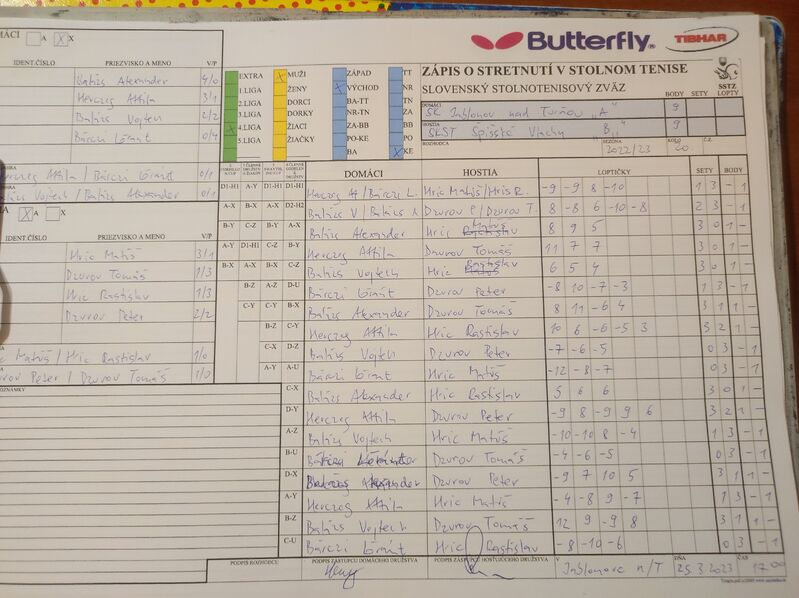 DOMÁCI A X X
IDENT.ČÍSLO PRIEZVISKO A MENO V/P
Baláž Alexander 4/0
Herczeg Attila 3/1
Baláž Vojtech 2/2
Bárczi Gőnőt 0/4
Herczeg Attila / Bárczi 0/1
Baláž Vojtech / Baláž Alexander 0/1
X A X
IDENT.ČÍSLO PRIEZVISKO A MENO V/P
Hric Matúš 3/1
Dzurov Tomáš 1/3
Hric Rastislav 1/3
Dzurov Peter 2/2
Hric Matúš / Hric Rastislav 1/0
Dzurov Peter / Dzurov Tomáš 1/0
POZNÁMKY
Butterfly TIBHAR
EXTRA X MUŽI ZÁPAD TT
1.LIGA ŽENY X VÝCHOD NR
2.LIGA DORCI BA-TT TN
3.LIGA DORKY NR-TN ZA
X 4.LIGA ŽIACI ZA-BB BB
5.LIGA ŽIAČKY PO-KE PO
BA X KE
ZÁPIS O STRETNUTÍ V STOLNOM TENISE
SLOVENSKÝ STOLNOTENISOVÝ ZVÄZ SSTZ
BODY SETY LOPTY
DOMÁCI SK Jablonov nad Turňou "A" 9
HOSTIA ŠKST Spišské Vlachy "B" 9
ROZHODCA SEZÓNA 2022/23 KOLO 20. Č.Z.
DOMÁCI HOSTIA LOPTIČKY SETY BODY
D1-H1 A-Y D1-H1 D1-H1 Herczeg At / Bárczi L. Hric Matúš/Hric R. -9 -9 8 -10 1 3 - 1
A-X B-X A-X D2-H2 Baláž V / Baláž A Dzurov P / Dzurov T. 8 -8 6 -10 -8 2 3 - 1
B-Y C-Z B-Y A-X Baláž Alexander Hric Matúš 8 9 5 3 0 1 -
A-Y D1-H1 C-Z B-Y Herczeg Attila Dzurov Tomáš 11 7 7 3 0 1 -
B-X A-X B-X C-Z Baláž Vojtech Hric Rastislav 6 5 4 3 0 1 -
B-Z A-Z D-U Dzurov Peter -8 10 -7 -3 1 3 - 1
C-Y C-Y B-X Baláž Alexander Dzurov Tomáš 8 11 -6 4 3 1 1 -
B-Z C-Y Herczeg Attila Hric Rastislav 10 6 -6 -5 3 3 2 1 -
C-X D-Z Baláž Vojtech Dzurov Peter -7 -6 -5 0 3 - 1
A-Y A-U Hric Matúš -12 -8 -7 0 3 - 1
C-X Baláž Alexander Hric Rastislav 5 6 6 3 0 1 -
D-Y Herczeg Attila Dzurov Peter -9 8 -9 9 6 3 2 1 -
A-Z Baláž Vojtech Hric Matúš -10 -10 8 -4 1 3 - 1
B-U Dzurov Tomáš -4 -6 -5 0 3 - 1
D-X Alexander Dzurov Peter -9 7 10 5 3 1 1 -
A-Y Herczeg Attila Hric Matúš -4 -8 9 -7 1 3 - 1
B-Z Baláž Vojtech Dzurov Tomáš 12 9 -9 8 3 1 1 -
C-U Hric Rastislav -8 -10 -6 0 3 - 1
PODPIS ROZHODCU PODPIS ZÁSTUPCU DOMÁCEHO DRUŽSTVA PODPIS ZÁSTUPCU HOSŤUJÚCEHO DRUŽSTVA V Jablonove n/T DŇA 25.3.2023 ČAS 17 00